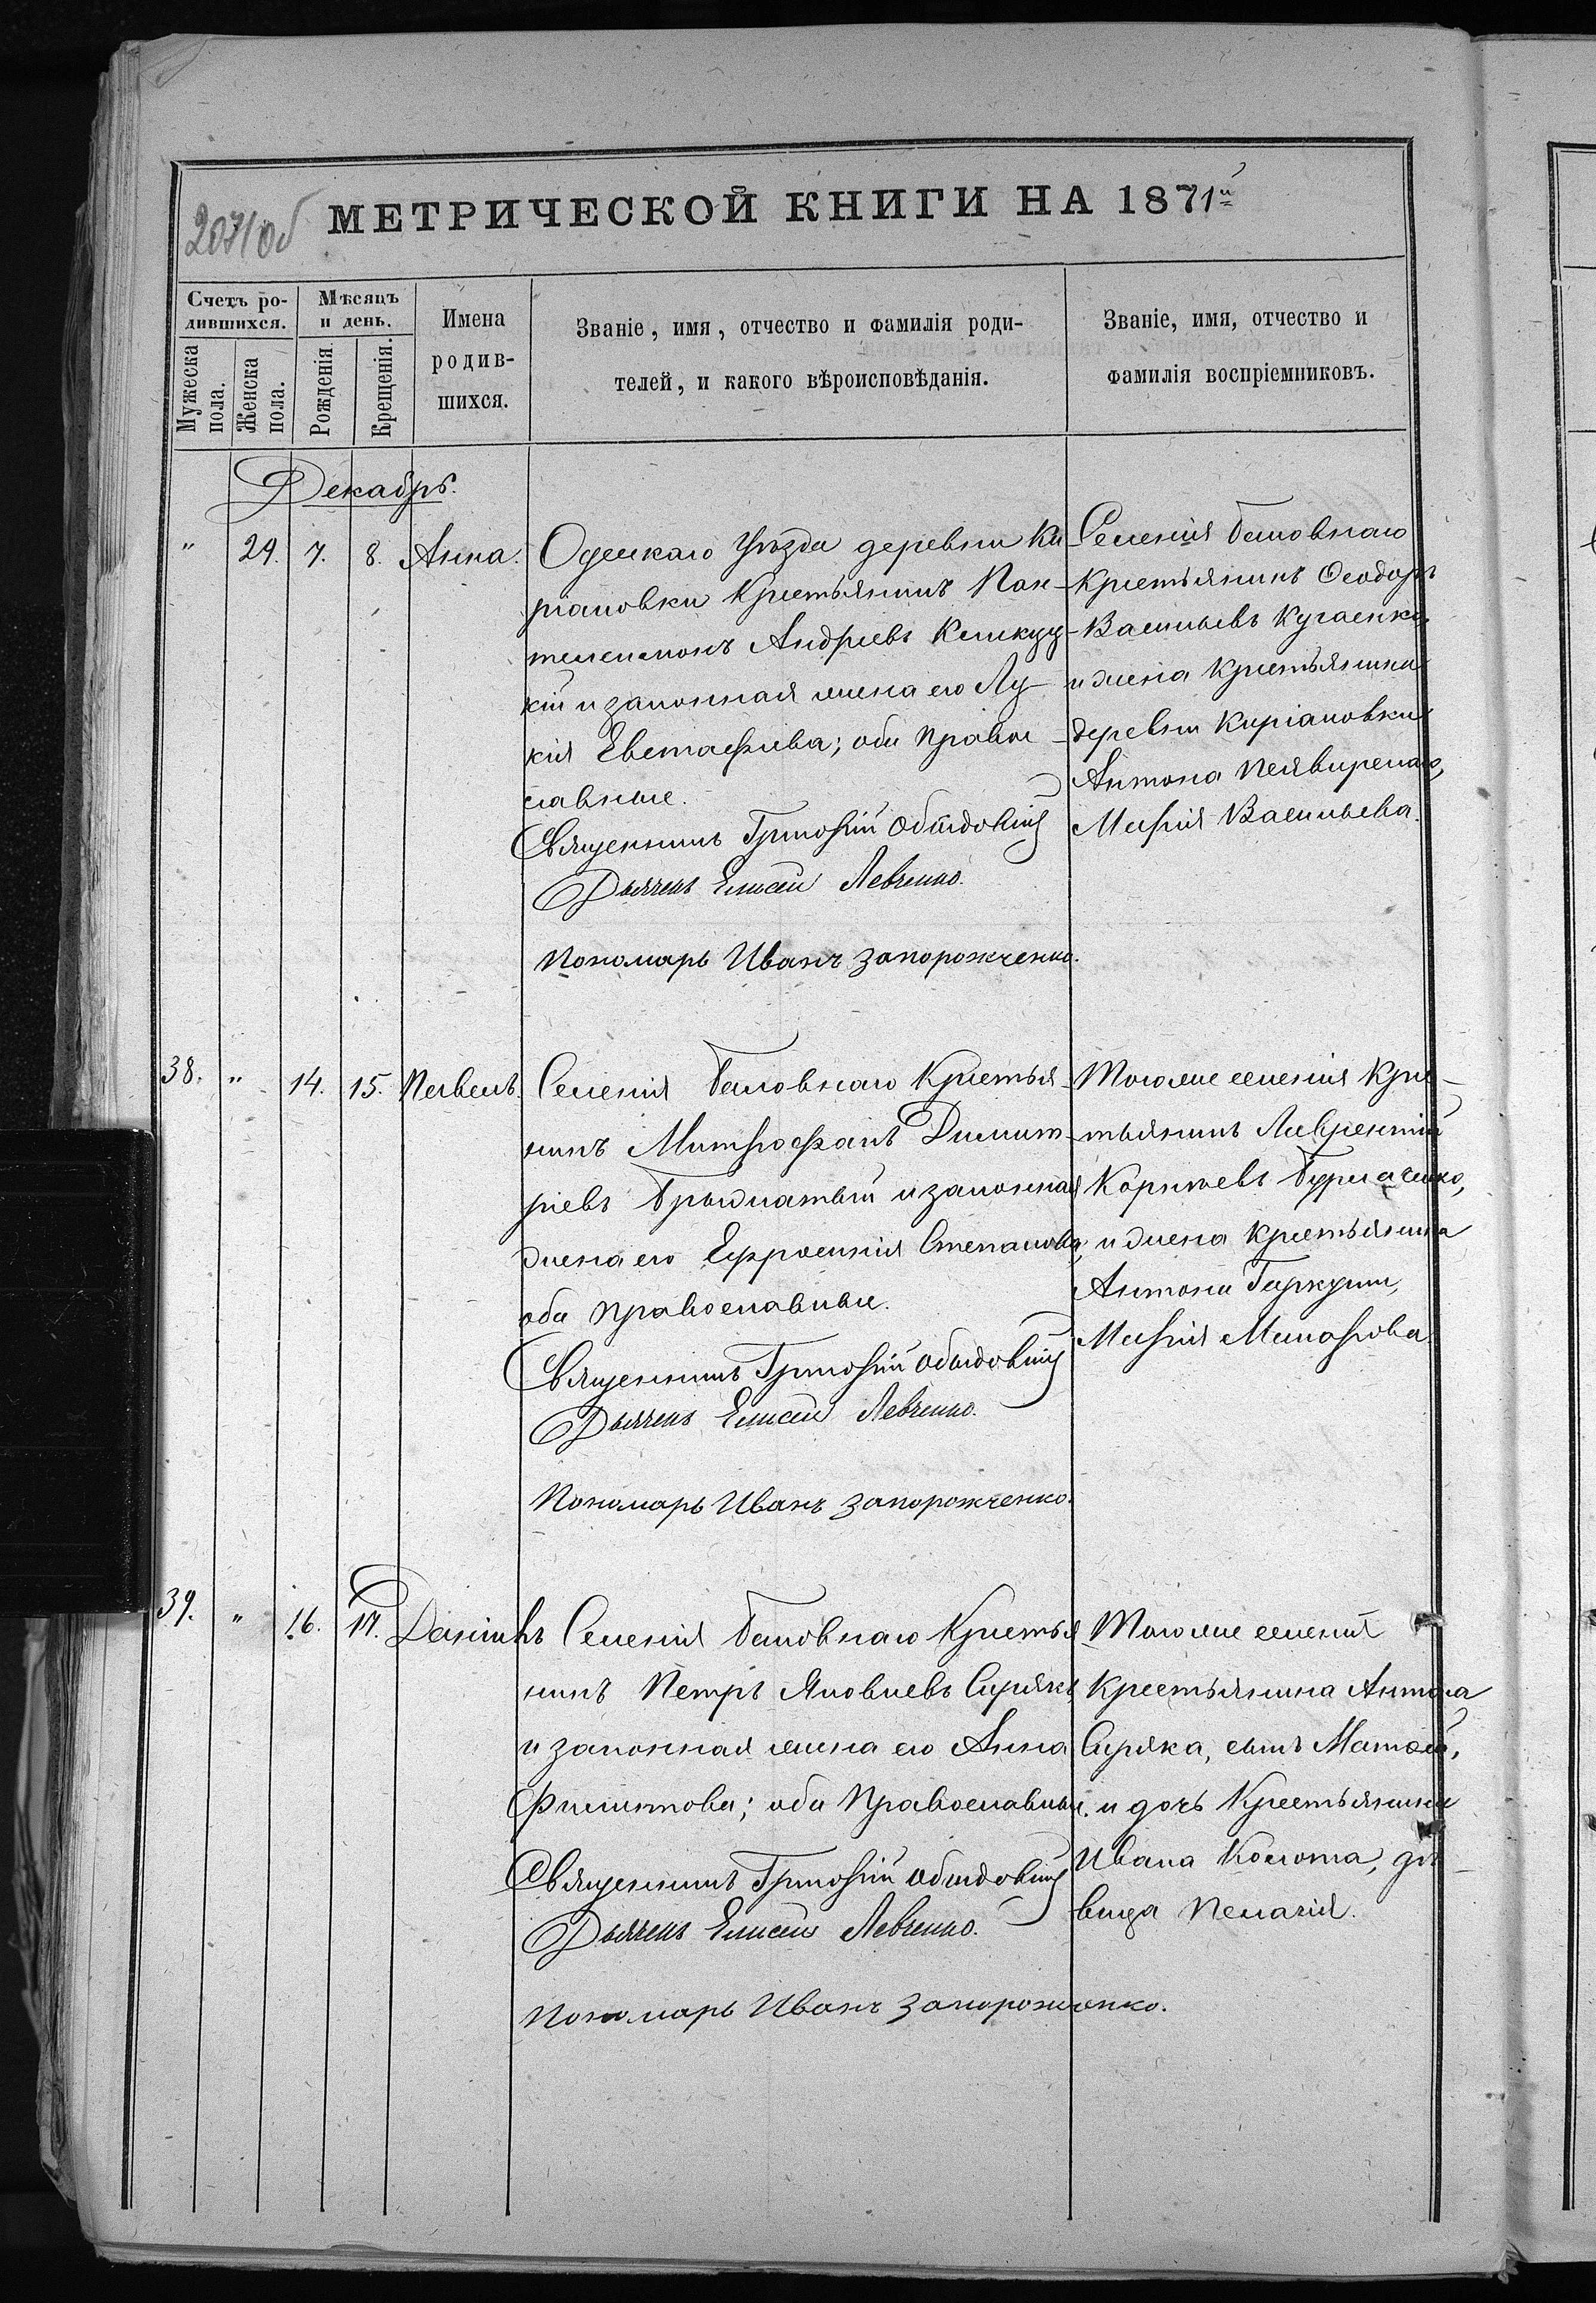 207/об
МЕТРИЧЕСКОЙ КНИГИ НА 1871й
Счетъ ро-
дившихся.
Мѣсяцъ
и день.
Мужеска
пола.
Женска
пола.
Рожденія.
Крещенія.
Имена
родив-
шихся.
Званіе, имя, отчество и фамилія роди-
телей, и какого вѣроисповѣданія.
Званіе, имя, отчество и
фамилія воспріемниковъ.
Декабрь.
" 29. 7. 8. Анна.
Одесскаго уѣзда деревни Ки
ріаковки Крестьянинъ Пан-
телеимонъ Андреевъ
кій и законная жена его Лу-
кія Евстафіева; оба право
славные.
Священникъ Григорій Обыдовскій
Дьячекъ Елисей Левченко.
Пономарь Иванъ Запорожченко.
Селенія Баловнаго
Крестьянинъ Ѳеодоръ
Васильевъ Кугаенко,
и жена Крестьянина
деревни Киріаковки
Антона
Марія Васильева.
38. " 14. 15. Павелъ.
Селенія Баловнаго Крестья-
нинъ Митрофанъ Димит-
ріевъ и законная
жена его Ефросинія Степанова;
оба Православные.
Священникъ Григорій Обыдовскій
Дьячекъ Елисей Левченко.
Пономарь Иванъ Запорожченко.
Тогоже селенія Кре-
стьянинъ Лаврентій
Корнѣевъ Бурлаченко,
и жена Крестьянина
Антона Гаркуши,
Марія Макарова
39. " 16. 17. Даніилъ
Селенія Баловнаго Крестья
нинъ Петръ Яковлевъ Сирякъ,
и законная жена его Анна
Филиппова; оба Православные.
Священникъ Григорій Обыдовскій
Дьячекъ Елисей Левченко.
Пономарь Иванъ Запорожченко.
Тогоже селенія
Крестьянина Антона
Сиряка, сынъ Матѳей,
и дочь Крестьянина
Ивана Колота, дѣ-
вица Пелагія.